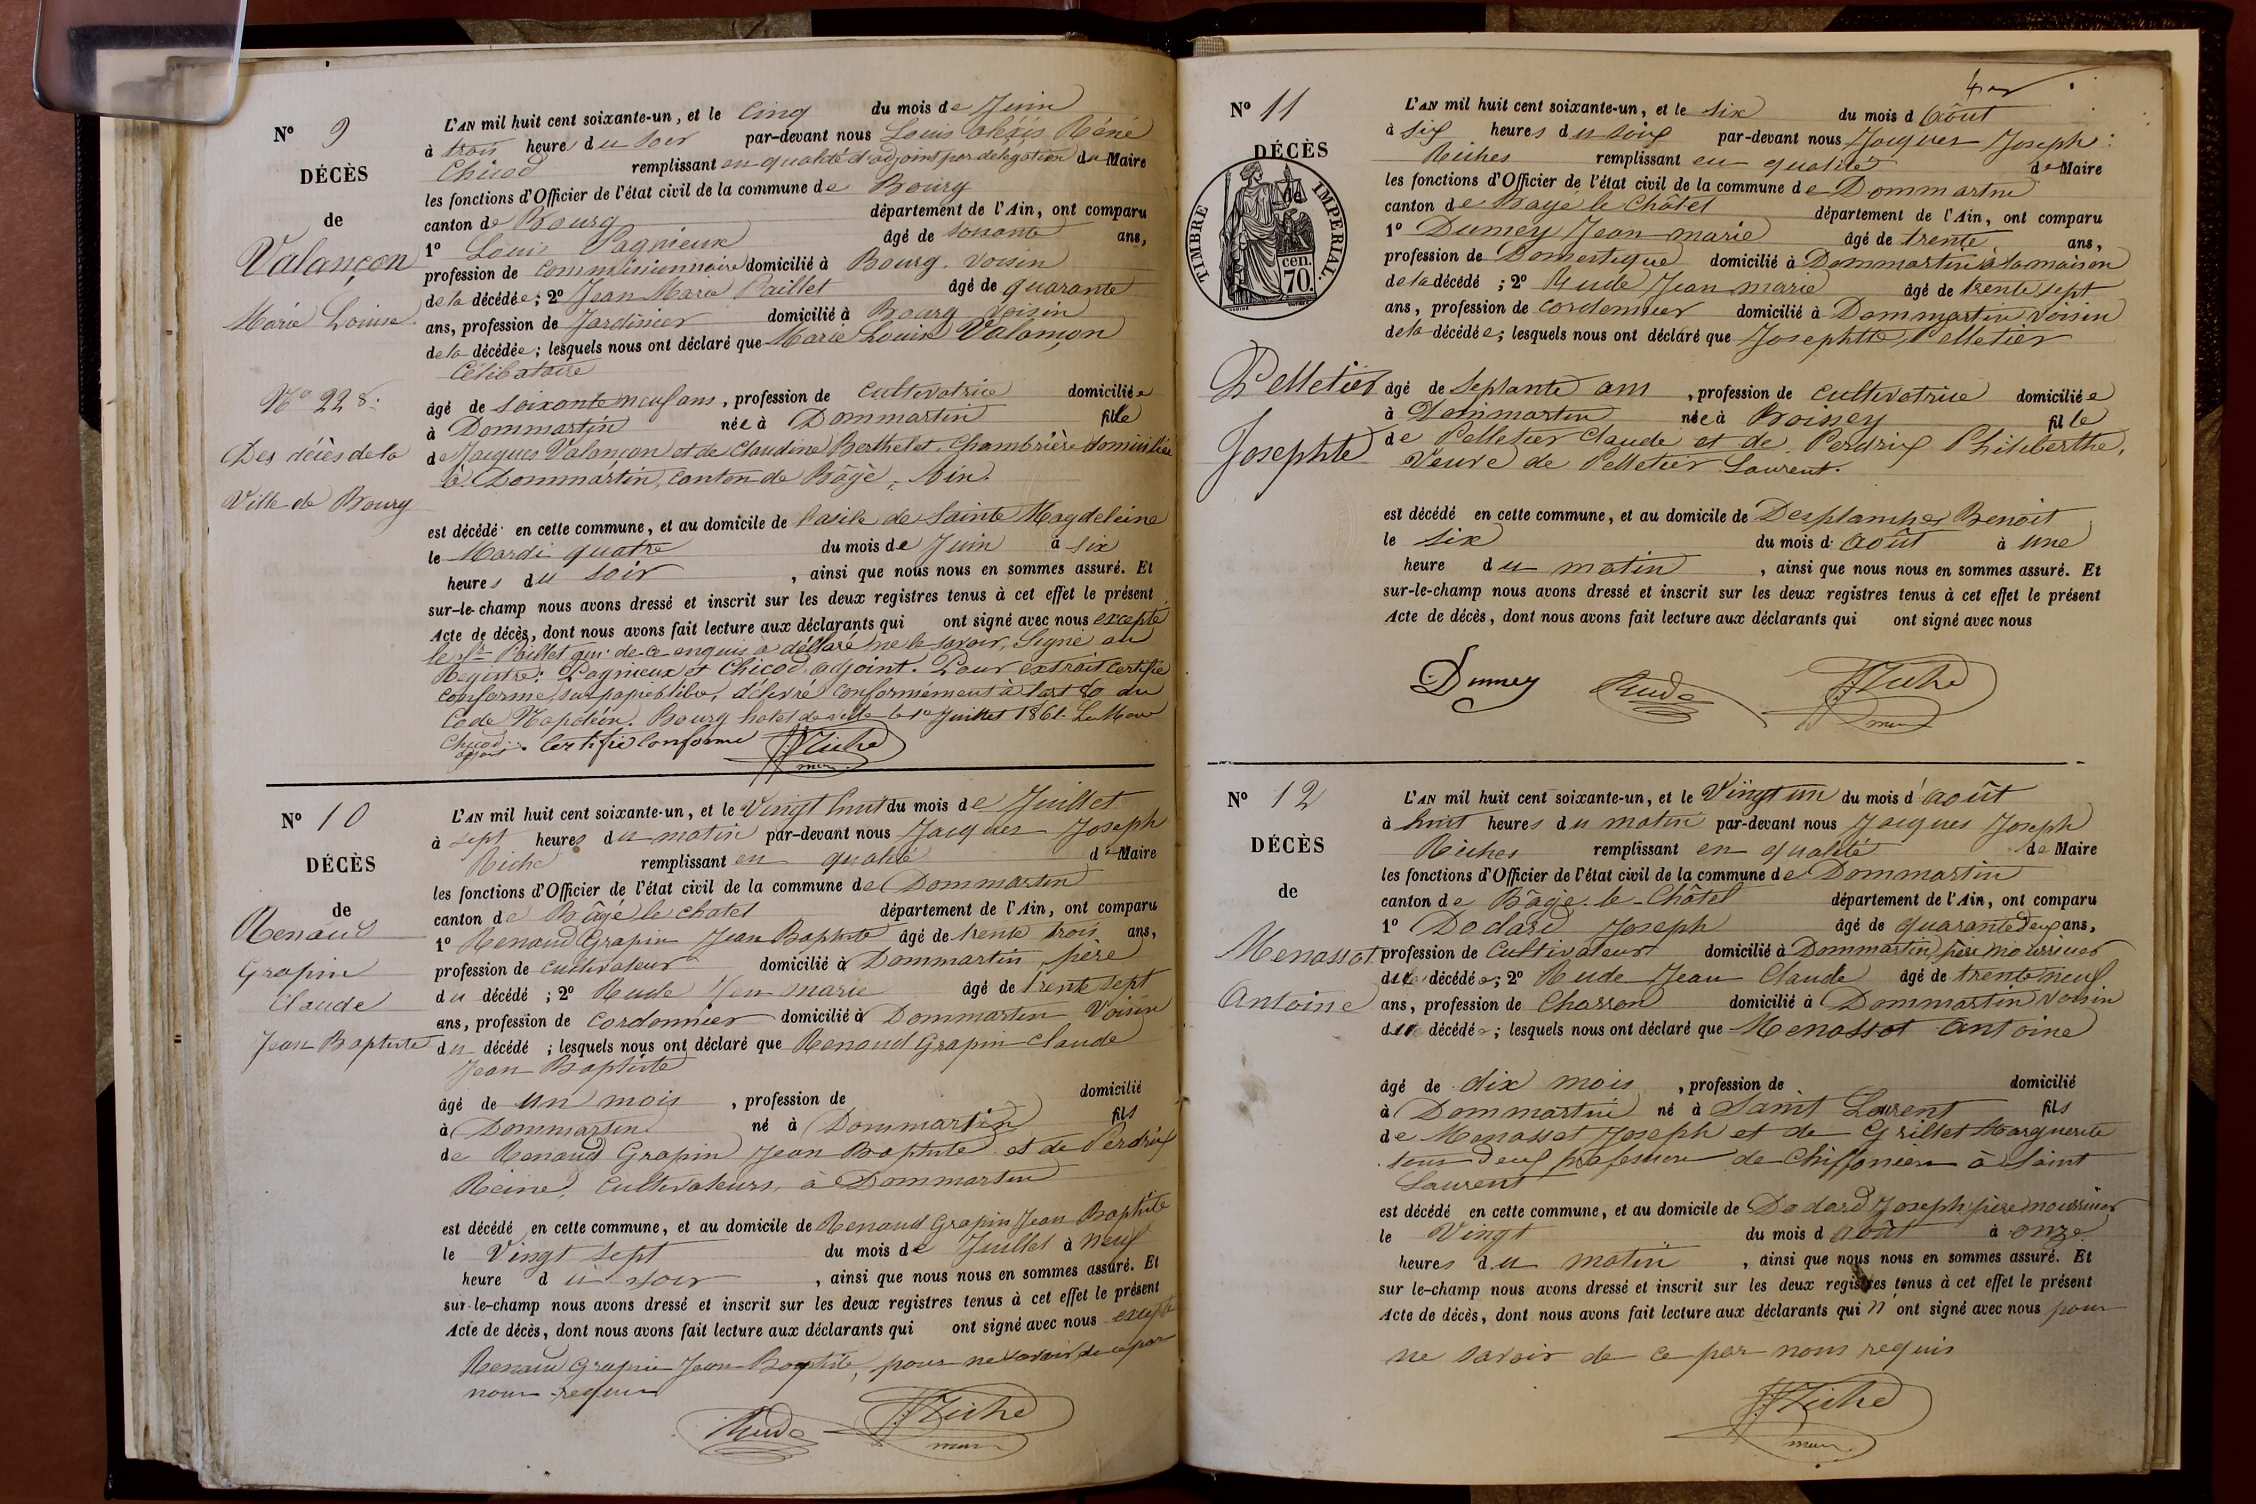 N° 9
DÉCÈS
de
Valançon
Marie Louise
N° 228.
Des décès de la
Ville de Bourg
L'AN mil huit cent soixante-un, et le cinq du mois de Juin
à trois heures du soir par-devant nous Louis Aléxis Réné
Chicod remplissant en qualité d'adjoint par délégation du Maire
les fonctions d'Officier de l'état civil de la commune de Bourg
canton de Bourg département de l'Ain, ont comparu
1° Louis Pagnieux âgé de soixante ans,
profession de commissionnaire domicilié à Bourg voisin
de la décédée; 2° Jean Marie Paillet âgé de quarante
ans, profession de Jardinier domicilié à Bourg voisin
de la décédée; lesquels nous ont déclaré que Marie Louise Valançon
Célibataire
âgé de soixante neuf ans, profession de cultivatrice domiciliée
à Dommartin née à Dommartin fille
de Jacques Valançon et de Claudine Berthelet, Chambrière domiciliée
à Dommartin, canton de Bâgé, Ain.
est décédé en cette commune, et au domicile de l'asile de Sainte Magdeleine
le Mardi quatre du mois de Juin à six
heures du soir, ainsi que nous nous en sommes assuré. Et
sur-le-champ nous avons dressé et inscrit sur les deux registres tenus à cet effet le présent
Acte de décès, dont nous avons fait lecture aux déclarants qui ont signé avec nous excepté
le Sr Paillet qui de ce enquis a déclaré ne le savoir, Signé au
Registre: Pagnieux et Chicod adjoint. Pour extrait certifié
conforme, sur papier libre, délivré conformément à l'art 80 du
Code Napoléon. Bourg hotel de ville le 1er Juillet 1861. Le Maire
Chicod adjoint. Certifié Conforme JJ Riche
maire
N° 10
DÉCÈS
de
Renaud
Grapin
Claude
Jean Baptiste
L'AN mil huit cent soixante-un, et le Vingt huit du mois de Juillet
à sept heures du matin par-devant nous Jacques Joseph
Riche remplissant en qualité de Maire
les fonctions d'Officier de l'état civil de la commune de Dommartin
canton de Bâgé le chatel département de l'Ain, ont comparu
1° Renaud Grapin Jean Baptiste âgé de trente trois ans,
profession de cultivateur domicilié à Dommartin père
du décédé; 2° Rude Jean marie âgé de trente sept
ans, profession de cordonnier domicilié à Dommartin Voisin
du décédé; lesquels nous ont déclaré que Renaud Grapin Claude
Jean Baptiste
âgé de un mois, profession de domicilié
à Dommartin né à Dommartin fils
de Renaud Grapin Jean Baptiste et de Perdrix
Reine, cultivateurs, à Dommartin
est décédé en cette commune, et au domicile de Renaud Grapin Jean Baptiste
le Vingt sept du mois de Juillet à neuf
heure du soir, ainsi que nous nous en sommes assuré. Et
sur-le-champ nous avons dressé et inscrit sur les deux registres tenus à cet effet le présent
Acte de décès, dont nous avons fait lecture aux déclarants qui ont signé avec nous excepté
Renaud Grapin Jean Baptiste, pour ne savoir de ce par
nous requis
Rude JJ Riche
maire
N° 11
DÉCÈS
TIMBRE IMPERIAL.
70 cen.
Pelletier
Josephte
L'AN mil huit cent soixante-un, et le six du mois d'Août
à six heures du soir par-devant nous Jacques Joseph
Riches remplissant en qualité de Maire
les fonctions d'Officier de l'état civil de la commune de Dommartin
canton de Bagé le Châtel département de l'Ain, ont comparu
1° Dumey Jean marie âgé de trente ans,
profession de Domestique domicilié à Dommartin à la maison
de la décédé; 2° Rude Jean marie âgé de trente sept
ans, profession de cordonnier domicilié à Dommartin Voisin
de la décédée; lesquels nous ont déclaré que Josephtte Pelletier
âgé de septante ans, profession de cultivatrice domiciliée
à Dommartin née à Boissey fille
de Pelletier Claude et de Perdrix Philiberthe,
Veuve de Pelletier Laurent.
est décédé en cette commune, et au domicile de Desplanches Benoit
le six du mois d' août à une
heure du matin, ainsi que nous nous en sommes assuré. Et
sur-le-champ nous avons dressé et inscrit sur les deux registres tenus à cet effet le présent
Acte de décès, dont nous avons fait lecture aux déclarants qui ont signé avec nous
Dumey Rude JJ Riche
maire
N° 12
DÉCÈS
de
Menassot
Antoine
L'AN mil huit cent soixante-un, et le Vingt un du mois d'août
à huit heures du matin par-devant nous Jacques Joseph
Riches remplissant en qualité de Maire
les fonctions d'Officier de l'état civil de la commune de Dommartin
canton de Bâgé-le-Châtel département de l'Ain, ont comparu
1° Dodard Joseph âgé de quarante deux ans,
profession de cultivateur domicilié à Dommartin, père nourricier
du décédé; 2° Rude Jean Claude âgé de trente neuf
ans, profession de Charron domicilié à Dommartin Voisin
du décédé; lesquels nous ont déclaré que Menassot Antoine
âgé de dix mois, profession de domicilié
à Dommartin né à Saint Laurent fils
de Menassot Joseph et de Grillet Marguerite
tous deux profession de Chiffoniers à Saint
Laurent
est décédé en cette commune, et au domicile de Dodard Joseph père nourricier
le Vingt du mois d'août à onze
heures du matin, ainsi que nous nous en sommes assuré. Et
sur le-champ nous avons dressé et inscrit sur les deux registres tenus à cet effet le présent
Acte de décès, dont nous avons fait lecture aux déclarants qui n'ont signé avec nous pour
ne savoir de ce par nous requis
JJ Riche
maire